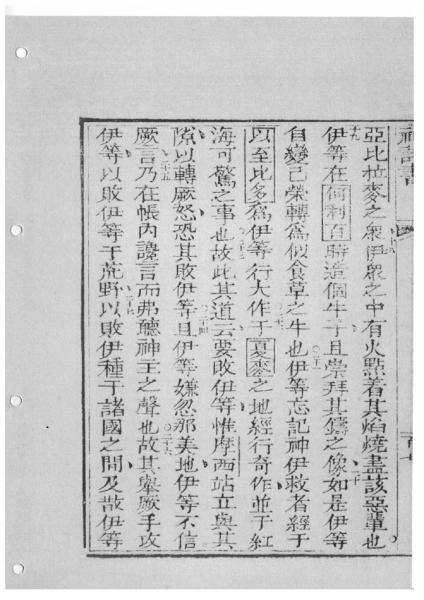 神詩書
亞比拉麥之衆伊衆之中有火點着其焰燒盡該惡輩也
伊等在何利百時造個牛子且崇拜其鑄之像如是伊等
自變己榮轉爲似食草之牛也伊等忘記神伊救者經于
以至比多爲伊等行大作于夏麥之地經行奇作並于紅
海可驚之事也故此其道云要敗伊等惟摩西站立與其
隙以轉厥怒恐其敗伊等且伊等嫌忽那美地伊等不信
厥言乃在帳內讒言而弗聽神主之聲也故其舉厥手攻
伊等以敗伊等于荒野以敗伊種于諸國之間及散伊等